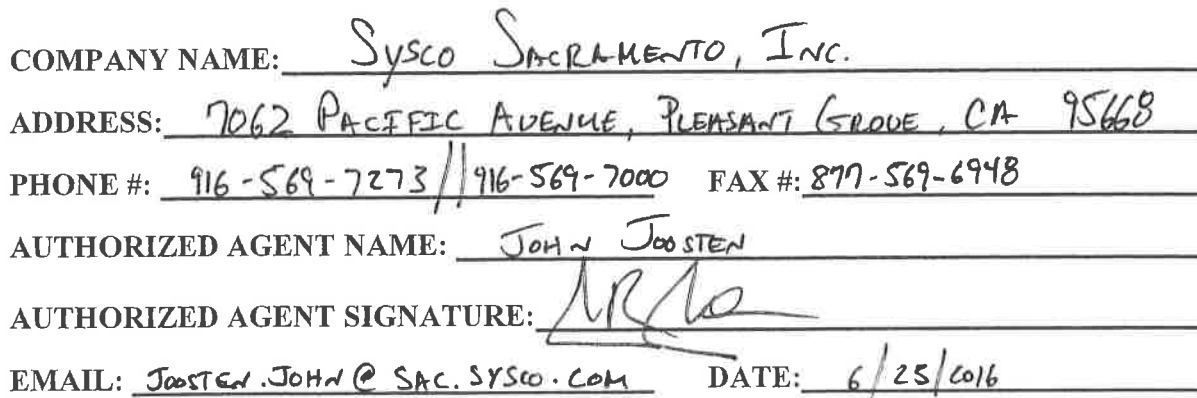 COMPANY NAME: Sysco Sacramento, Inc.
ADDRESS: 7062 Pacific Avenue, Pleasant Grove, CA 95668
PHONE #: 916-569-7273 // 916-569-7000 FAX #: 877-569-6948
AUTHORIZED AGENT NAME: John Joosten
AUTHORIZED AGENT SIGNATURE:
EMAIL: Joosten.John@sac.sysco.com DATE: 6/25/2016